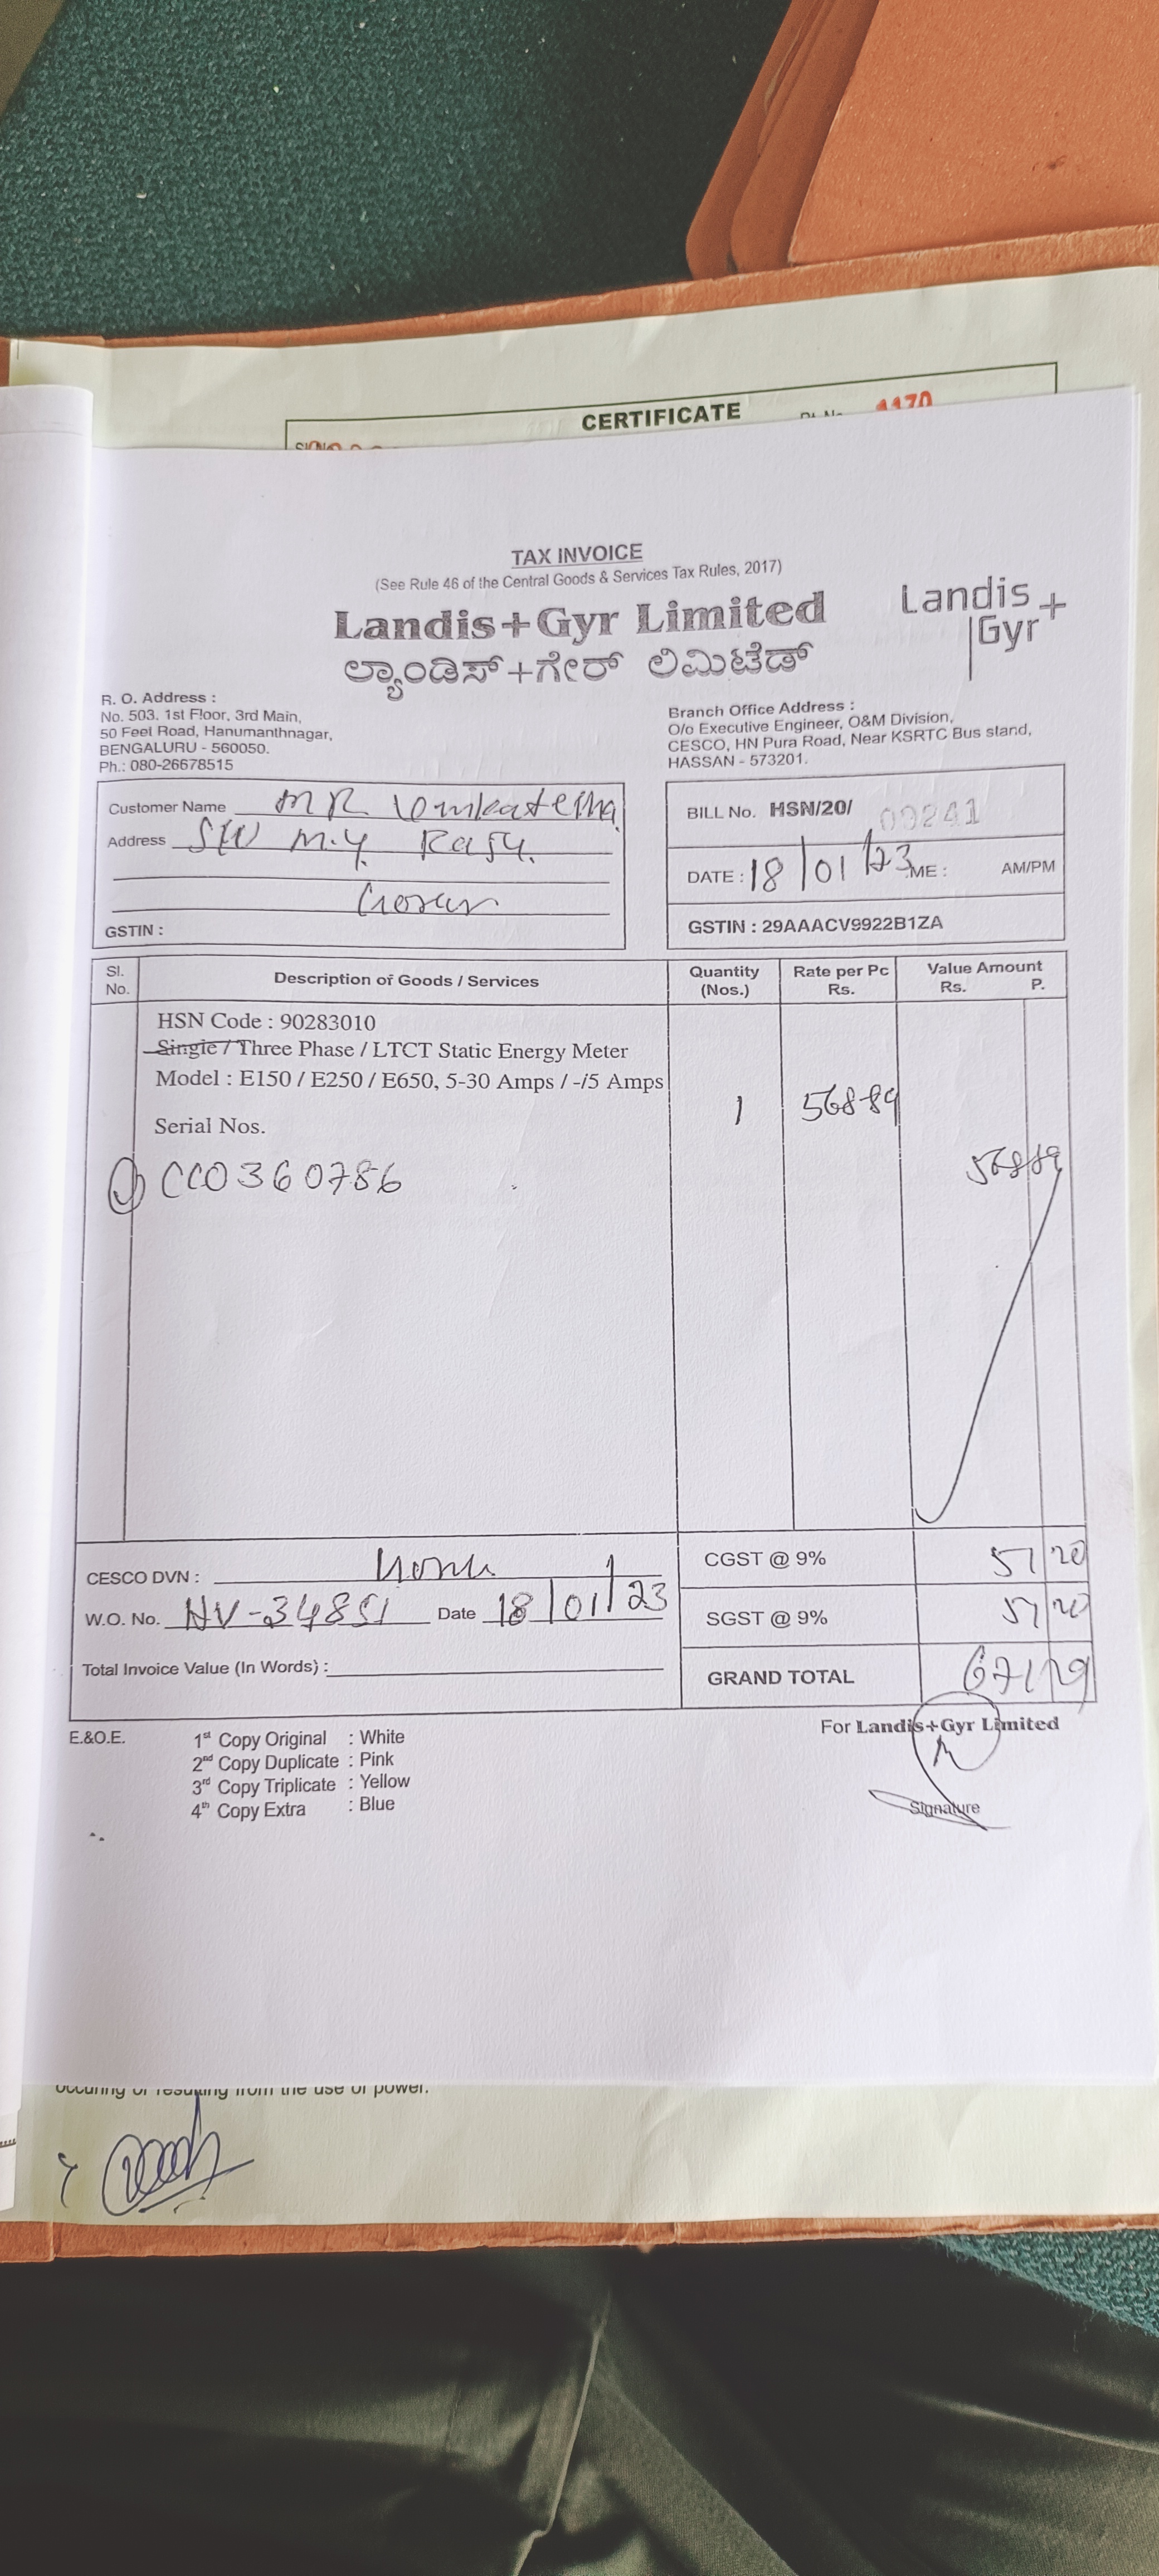 CERTIFICATE
1170
TAX INVOICE
(See Rule 46 of the Central Goods & Services Tax Rules, 2017)
Landis+Gyr Limited
ಲ್ಯಾಂಡಿಸ್+ಗೇರ್ ಲಿಮಿಟೆಡ್
Landis+
Gyr
R. O. Address :
No. 503. 1st Floor, 3rd Main,
50 Feel Road, Hanumanthnagar,
BENGALURU - 560050.
Ph.: 080-26678515
Branch Office Address :
O/o Executive Engineer, O&M Division,
CESCO, HN Pura Road, Near KSRTC Bus stand,
HASSAN - 573201.
Customer Name MR
Address M.Y.
GSTIN :
BILL No. HSN/20/ 09241
DATE : 18/01/23 ME : AM/PM
GSTIN : 29AAACV9922B1ZA
Sl. No. Description of Goods / Services Quantity (Nos.) Rate per Pc Rs. Value Amount Rs. P.
HSN Code : 90283010
Single / Three Phase / LTCT Static Energy Meter
Model : E150 / E250 / E650, 5-30 Amps / -/5 Amps
1 568-89
Serial Nos.
1 CC0360786 568 89
CESCO DVN :
CGST @ 9% 51 20
W.O. No. Date 18/01/23
SGST @ 9% 51 20
Total Invoice Value (In Words) :
GRAND TOTAL 671 29
E.&O.E.
1st Copy Original : White
2nd Copy Duplicate : Pink
3rd Copy Triplicate : Yellow
4th Copy Extra : Blue
For Landis+Gyr Limited
Signature
occuring or resulting from the use of power.